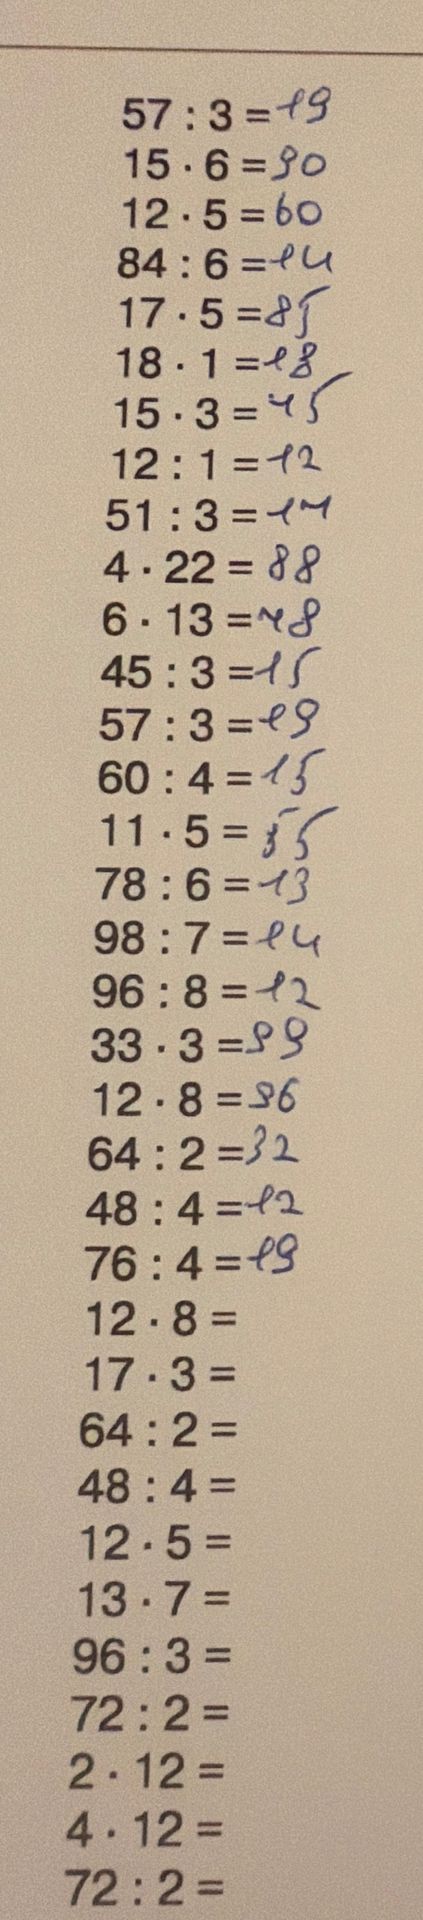 57 : 3 = 19
15 · 6 = 90
12 · 5 = 60
84 : 6 = 14
17 · 5 = 85
18 · 1 = 18
15 · 3 = 45
12 : 1 = 12
51 : 3 = 17
4 · 22 = 88
6 · 13 = 78
45 : 3 = 15
57 : 3 = 19
60 : 4 = 15
11 · 5 = 55
78 : 6 = 13
98 : 7 = 14
96 : 8 = 12
33 · 3 = 99
12 · 8 = 96
64 : 2 = 32
48 : 4 = 12
76 : 4 = 19
12 · 8 =
17 · 3 =
64 : 2 =
48 : 4 =
12 · 5 =
13 · 7 =
96 : 3 =
72 : 2 =
2 · 12 =
4 · 12 =
72 : 2 =